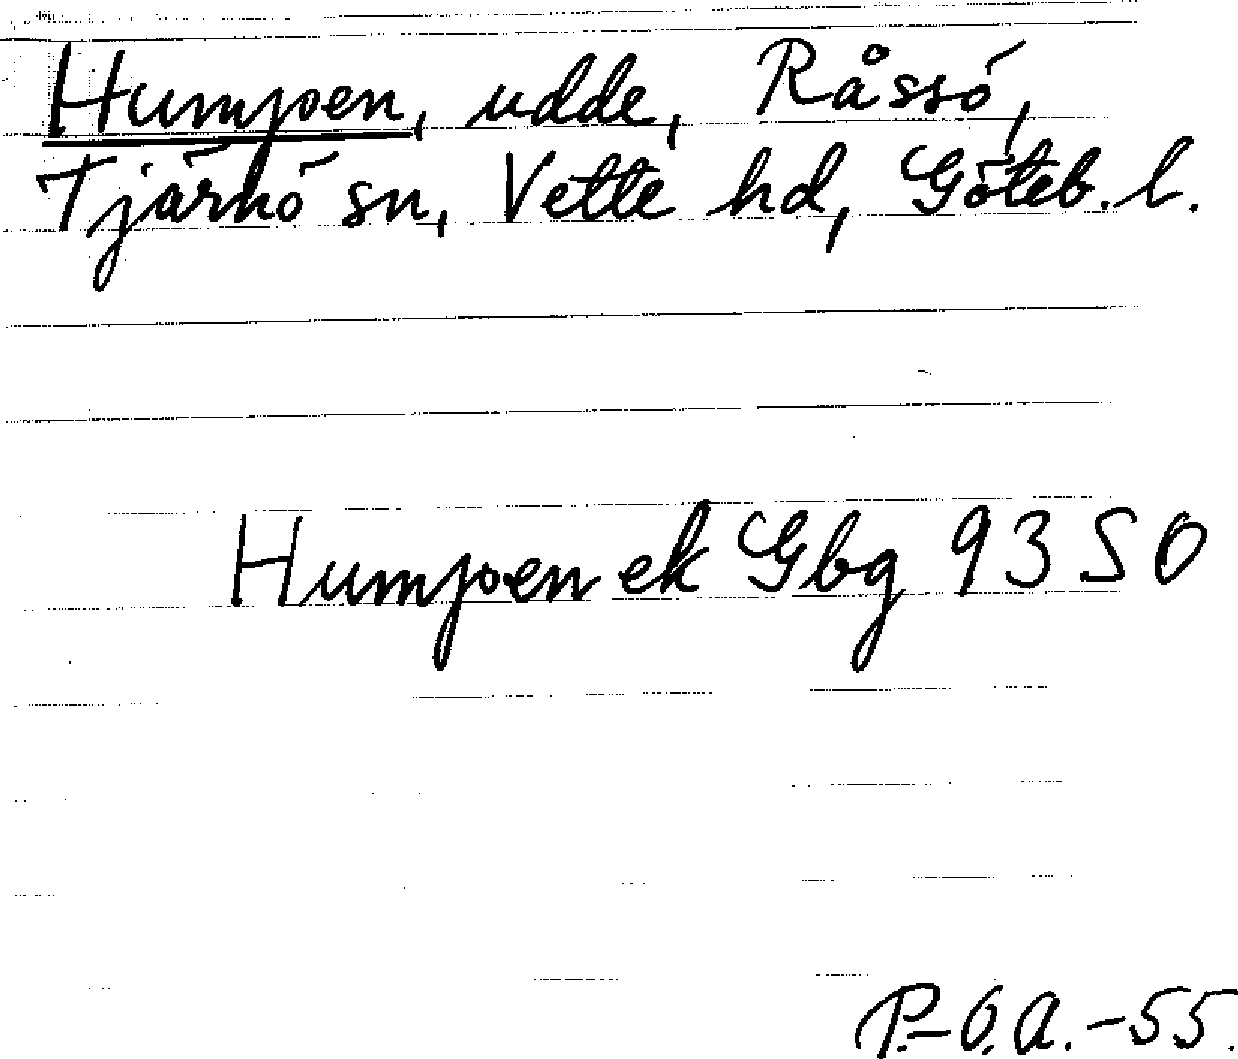 Humpen, udde, Råssö,
Tjärnö sn, Vette hd, Göteb. l.
Humpen ek Gbg 93 SO
P.-O.A.-55.